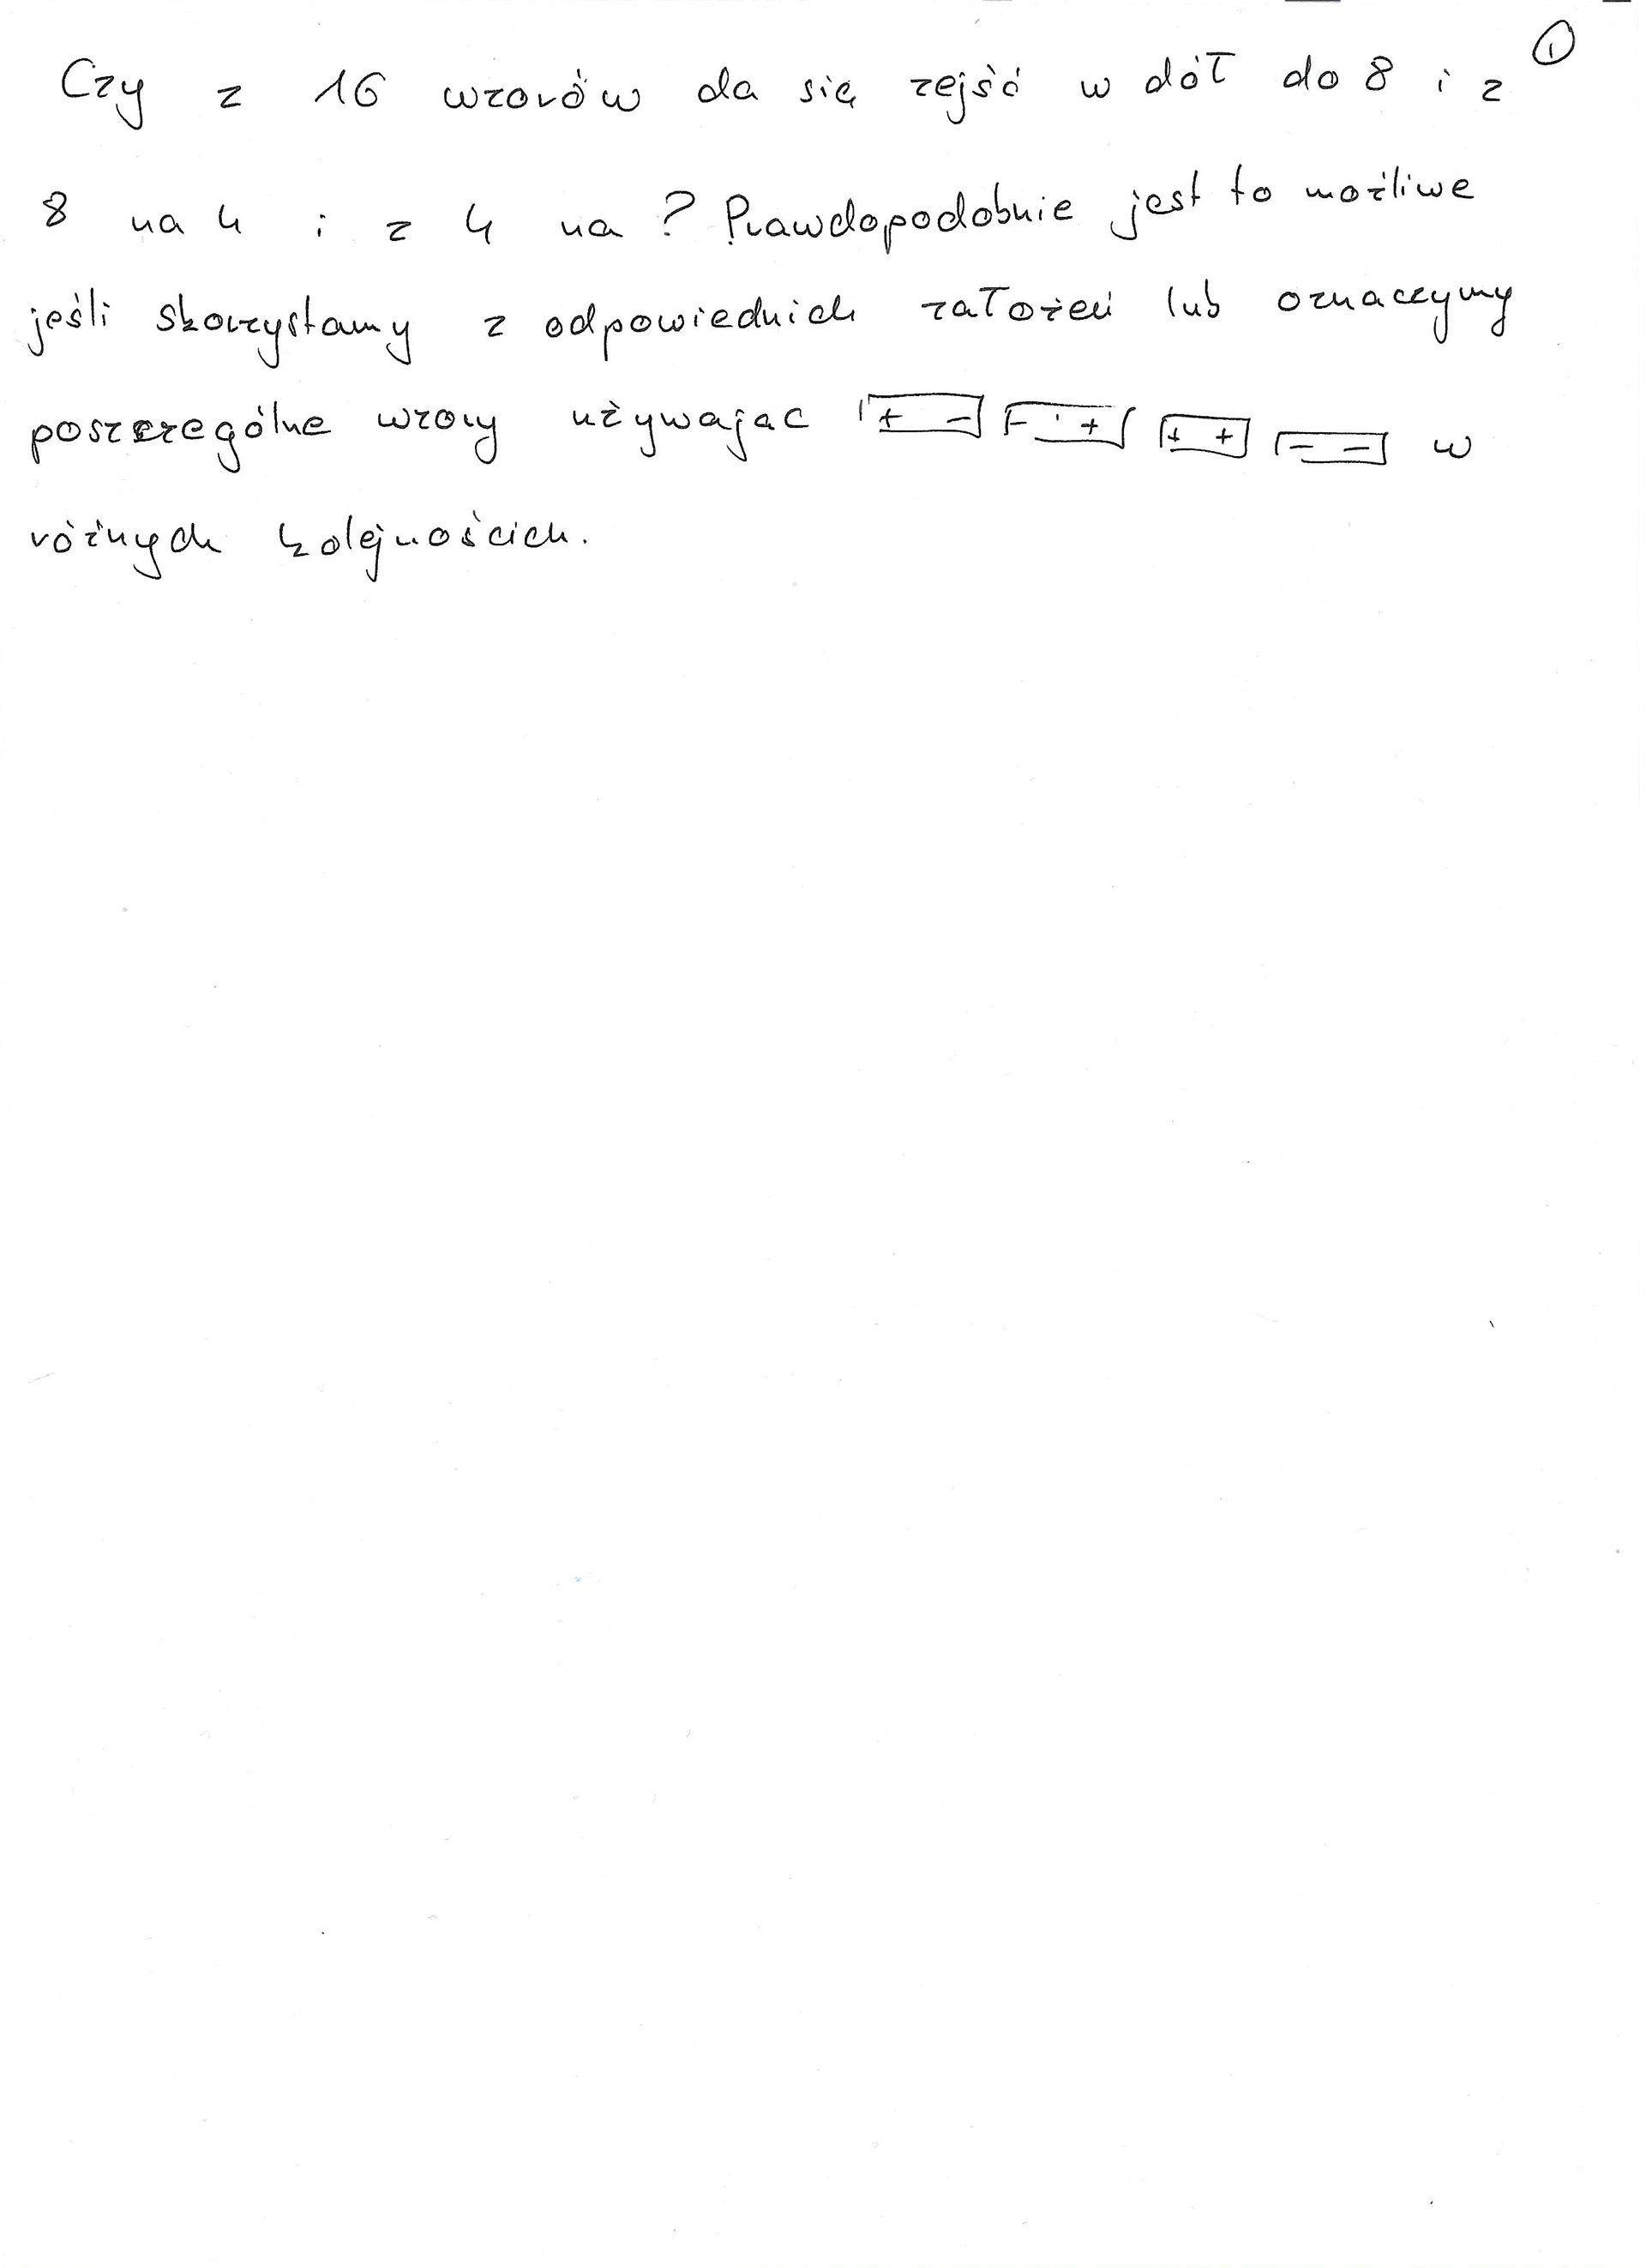 ①
Czy z 16 wzorów da się zejść w dół do 8 i z
8 na 4 i z 4 na ? Prawdopodobnie jest to możliwe
jeśli skorzystamy z odpowiednich założeń lub oznaczymy
poszczególne wzory używając + - - + + + - - w
różnych kolejnościch.